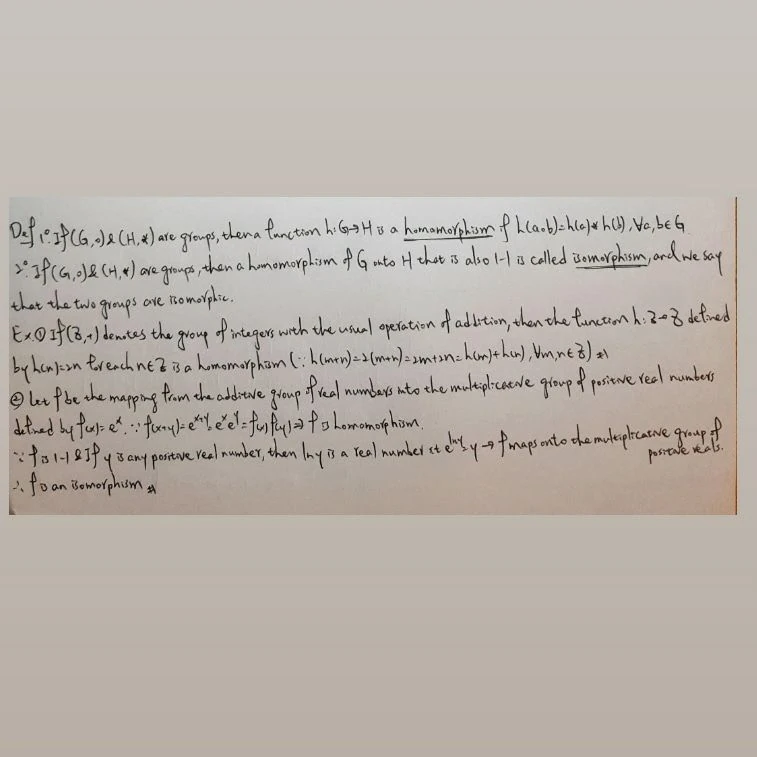 Def 1° If (G,∘) & (H,*) are groups, then a function h: G→H is a homomorphism if h(a∘b)=h(a)*h(b), ∀a,b∈G
2° If (G,∘) & (H,*) are groups, then a homomorphism of G onto H that is also 1-1 is called isomorphism, and we say
that the two groups are isomorphic.
Ex ① If (Z,+) denotes the group of integers with the usual operation of addition, then the function h: Z→Z defined
by h(n)=2n for each n∈Z is a homomorphism (∵ h(m+n)=2(m+n)=2m+2n=h(m)+h(n), ∀m,n∈Z) #
② Let f be the mapping from the additive group of real numbers into the multiplicative group of positive real numbers
defined by f(x)=e^x. ∵ f(x+y)=e^{x+y}=e^x e^y=f(x)f(y) ⇒ f is homomorphism.
∵ f is 1-1 & If y is any positive real number, then ln y is a real number st e^{ln y}=y → f maps onto the multiplicative group of
positive reals.
∴ f is an isomorphism #